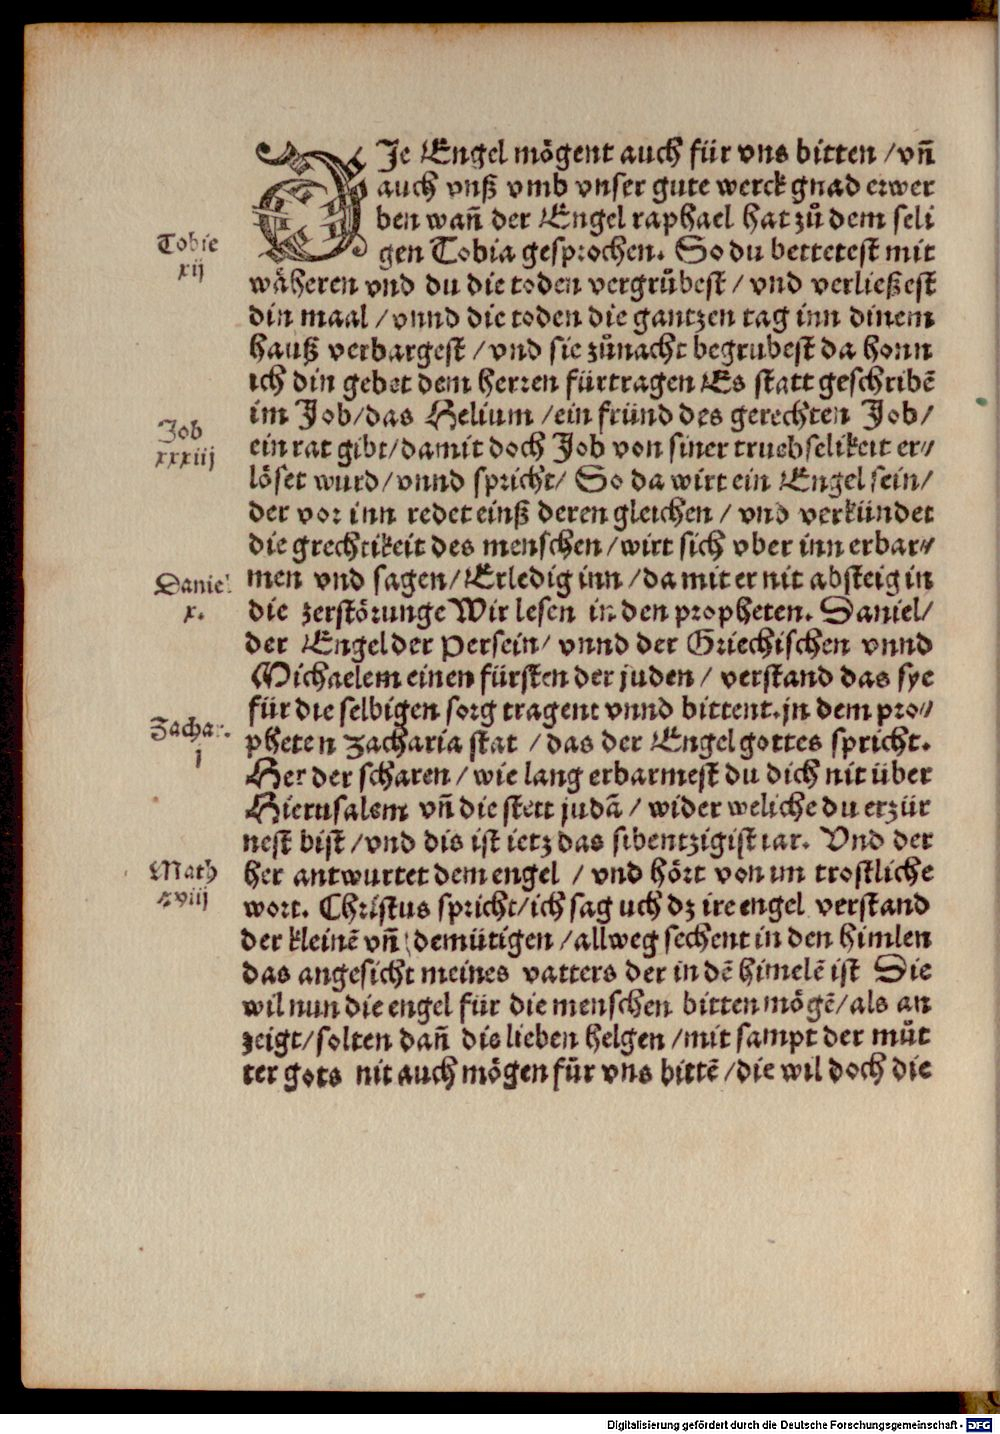 DIe Engel mögent auch für vns bitten / vñ
auch vnß vmb vnser gute werck gnad erwer
ben wañ der Engel raphael hat zů dem seli
gen Tobia gesprochen. So du bettetest mit
Tobie
xij
wäheren vnd du die toden vergrůbest / vnd verließest
din maal / vnnd die toden die gantzen tag inn dinem
hauß verbargest / vnd sie zůnacht begrubest da honn
ich din gebet dem herren fürtragen Es statt geschribẽ
im Job / das Helium / ein fründ des gerechten Job /
Job
xxxiij
ein rat gibt / damit doch Job von siner truebselikeit er⸗
löset wurd / vnnd spricht / So da wirt ein Engel sein /
der vor inn redet einß deren gleichen / vnd verkündet
die grechtikeit des menschen / wirt sich vber inn erbar⸗
Daniel
x.
men vnd sagen / Erledig inn / da mit er nit absteig in
die zerstörunge Wir lesen in den propheten. Daniel /
der Engel der Persein / vnnd der Griechischen vnnd
Michaelem einen fürsten der juden / verstand das sye
für die selbigen sorg tragent vnnd bittent. jn dem pro⸗
Zachar.
j
pheten Zacharia stat / das der Engel gottes spricht.
Her der scharen / wie lang erbarmest du dich nit über
Hierusalem vñ die stett judã / wider weliche du erzür
nest bist / vnd dis ist ietz das sibentzigist iar. Vnd der
Math
xviij
her antwurtet dem engel / vnd hört von im trostliche
wort. Christus spricht / ich sag uch dz ire engel verstand
der kleinẽ vñ demütigen / allweg sechent in den himlen
das angesicht meines vatters der in dẽ himelẽ ist Die
wil nun die engel für die menschen bitten mögẽ / als an
zeigt / solten dañ die lieben helgen / mit sampt der můt
ter gots nit auch mögen für vns bittẽ / die wil doch die
Digitalisierung gefördert durch die Deutsche Forschungsgemeinschaft - DFG